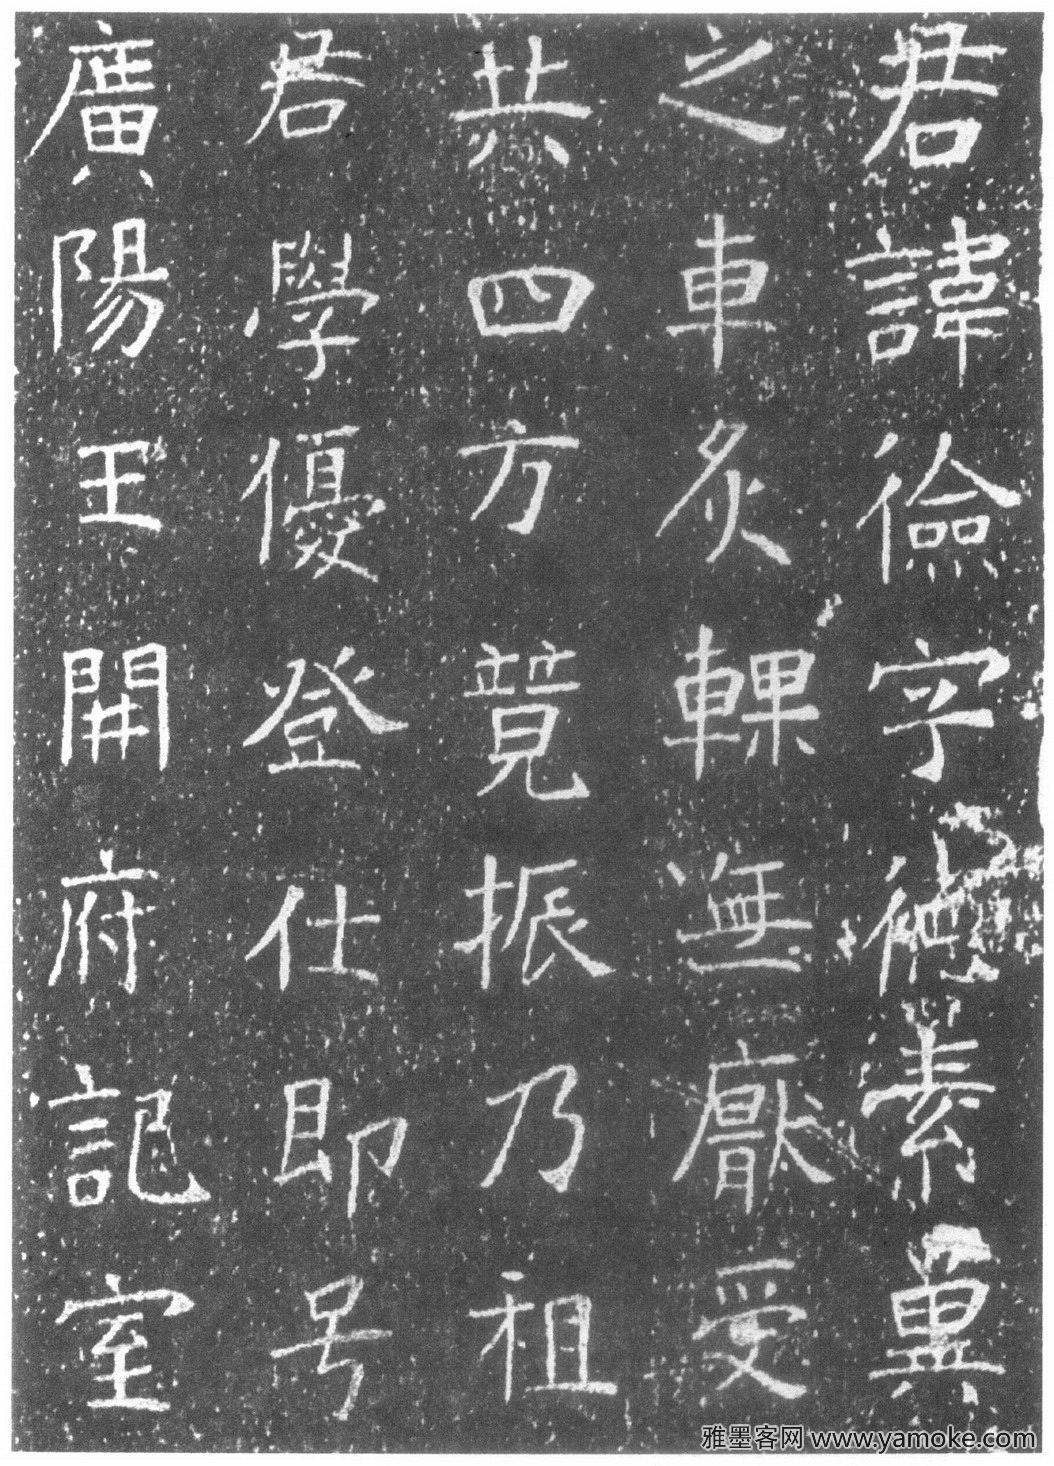 君諱儉字德素冀
之車炙輠無厭受
共四方竟振乃祖
君學優登仕即号
廣陽王開府記室
雅墨客网 www.yamoke.com